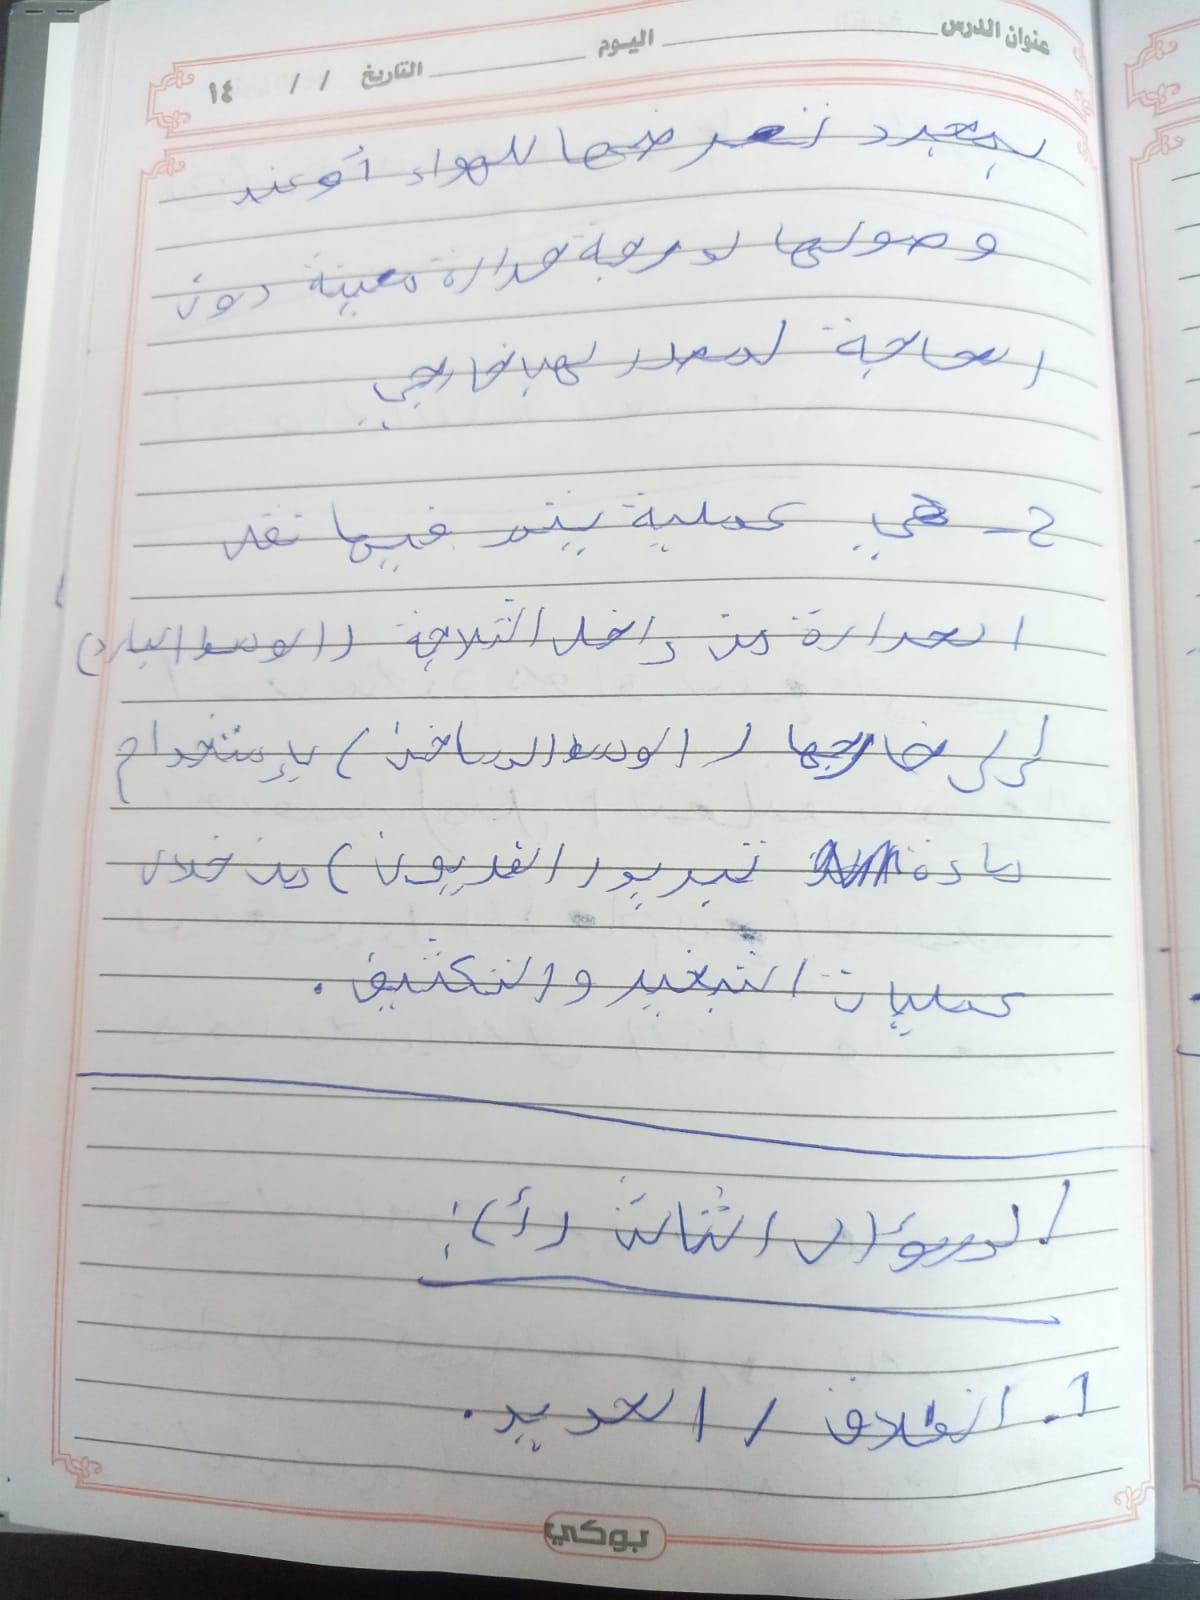 عنوان الدرس اليوم التاريخ / / ١٤
بمجرد تعرضها للهواء أو عند
وصولها لدرجة حرارة معينة دون
الحاجة لمصدر لهب خارجي
ح- هي عملية يتم فيها نقل
الحرارة من داخل الثلاجة (الوسط البارد)
إلى خارجها (الوسط الساخن) بإستخدام
مادة تبريد (الفريون) من خلال
عمليات التبخير والتكثيف.
السؤال الثالث (أ):
1. الغلاف / الحديد.
بوكي